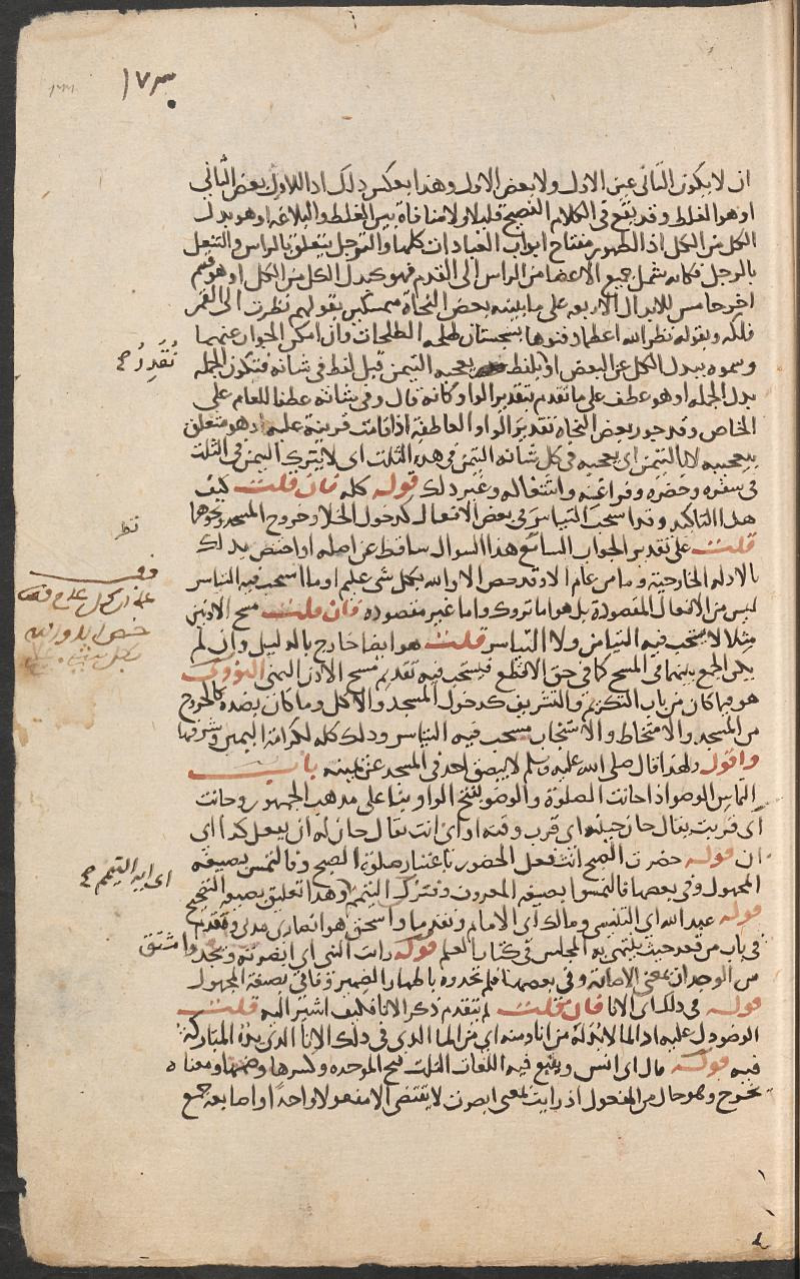 ١٧٣
ان لا يكون الثاني عين الاول ولا بعض الاول وهذا بعكس ذلك اذ الاول بعض الثاني
او هو الغلط وقد يقع في الكلام الفصيح قليلا ولا منافاة بين الغلط والبلاغه او هو بدل
الكل من الكل اذ الطهور مفتاح ابواب العبادات كلها والترجل يتعلق بالراس والتنعل
بالرجل فكانه شمل جميع الاعضا من الراس الى القدم فهو كبدل الكل من الكل او هو قسم
اخر خامس للابدال الاربعه على ما بينه بعض النحاة متمسكين بقولهم نظرت الى القمر
فلكه وبقوله نظر الله اعظما دفنوها بسجستان طلحة الطلحات وان امكن الجواب عنهما
وسموه ببدل الكل عن البعض او بلفظ يعجبه التيمن قبل لفظ في شانه فتكون الجمله
نُقَدِرُ صح
بدل الجمله او هو عطف على ما تقدم بتقدير الواو كانه قال وفي شانه عطفا للعام على
الخاص وقد جوز بعض النحاه تقدير الواو العاطفه اذا قامت قرينة عليه او هو متعلق
بيعجبه لا بالتيمن اي يعجبه في كل شانه التيمن في هذه الثلث اي لا يترك التيمن في الثلث
في سفره وحضره وفراغه واشتغاله وغير ذلك قوله كله فان قلت كيف
هذا التاكيد وقد استحب التياسر في بعض الافعال كدخول الخلا وخروج المسجد ونحوهما
قلت على تقدير الجواب السابع هذا السوال ساقط عن اصله او اختص بذلك
بالادله الخارجية وما من عام الا وقد خص الا والله بكل شي عليم او ما استحب فيه التياسر
ليس من الافعال المقصودة بل هو اما تروك واما غير مقصوده فان قلت مسح الاذنين
مثلا لا يستحب فيه التيامن ولا التياسر قلت هو ايضا خارج بالدليل وان لم
يكن الجمع بينهما في المسح كما في حق الاقطع فيستحب فيه تقديم مسح الاذن اليمنى النووي
هو فيما كان من باب التكريم والتشريف كدخول المسجد والاكل وما كان بضده كالخروج
من المسجد والامتخاط والاستنجاء يستحب فيه التياسر وذلك كله لكرامة اليمين وشرفها
واقول ولهذا قال صلى الله عليه وسلم لا يبصق احد في المسجد عن يمينه باب
التماس الوضو اذا حانت الصلوة والوضو بفتح الواو بنا على مذهب الجمهور وحانت
اي قربت يقال حان حينه اي قرب وقته او اي انت يقال حان له ان يفعل كذا اي
ان قوله حضرت الصبح انث فعل الحضور باعتبار صلوة الصبح وفالتمس بصيغة
المجهول وفي بعضها فالتمسوا بصيغه المعروف ونزل التيمم وهذا تعليق بصيغه التصحيح
اي ايه التيمم صح
قوله عبد الله اي التنيسي ومالك اي الامام وتقدما واسحق هو انصاري مدني وتقدم
في باب من قعد حيث ينتهي به المجلس في كتاب العلم قوله رايت النبي اي ابصرته ويجدوا مشتق
من الوجدان بمعنى الاصابة وفي بعضها فلم يجدوه باظهار الضمير وفاتي بصيغة المجهول
قوله في ذلك اي الانا فان قلت لم يتقدم ذكر الانا فكيف اشير اليه قلت
الوضو دل عليه اذ الما لا بد له من انا ومنه اي من الما الذي في ذلك الانا الذي يده المباركة
فيه قوله قال اي انس وينبع فيه اللغات الثلث فتح الموحده وكسرها وضمها ومعناه
يخرج وهو حال من المفعول اذ رايت بمعنى ابصرت لا يقتضي الا مفعولا واحدا واصابعه جمع